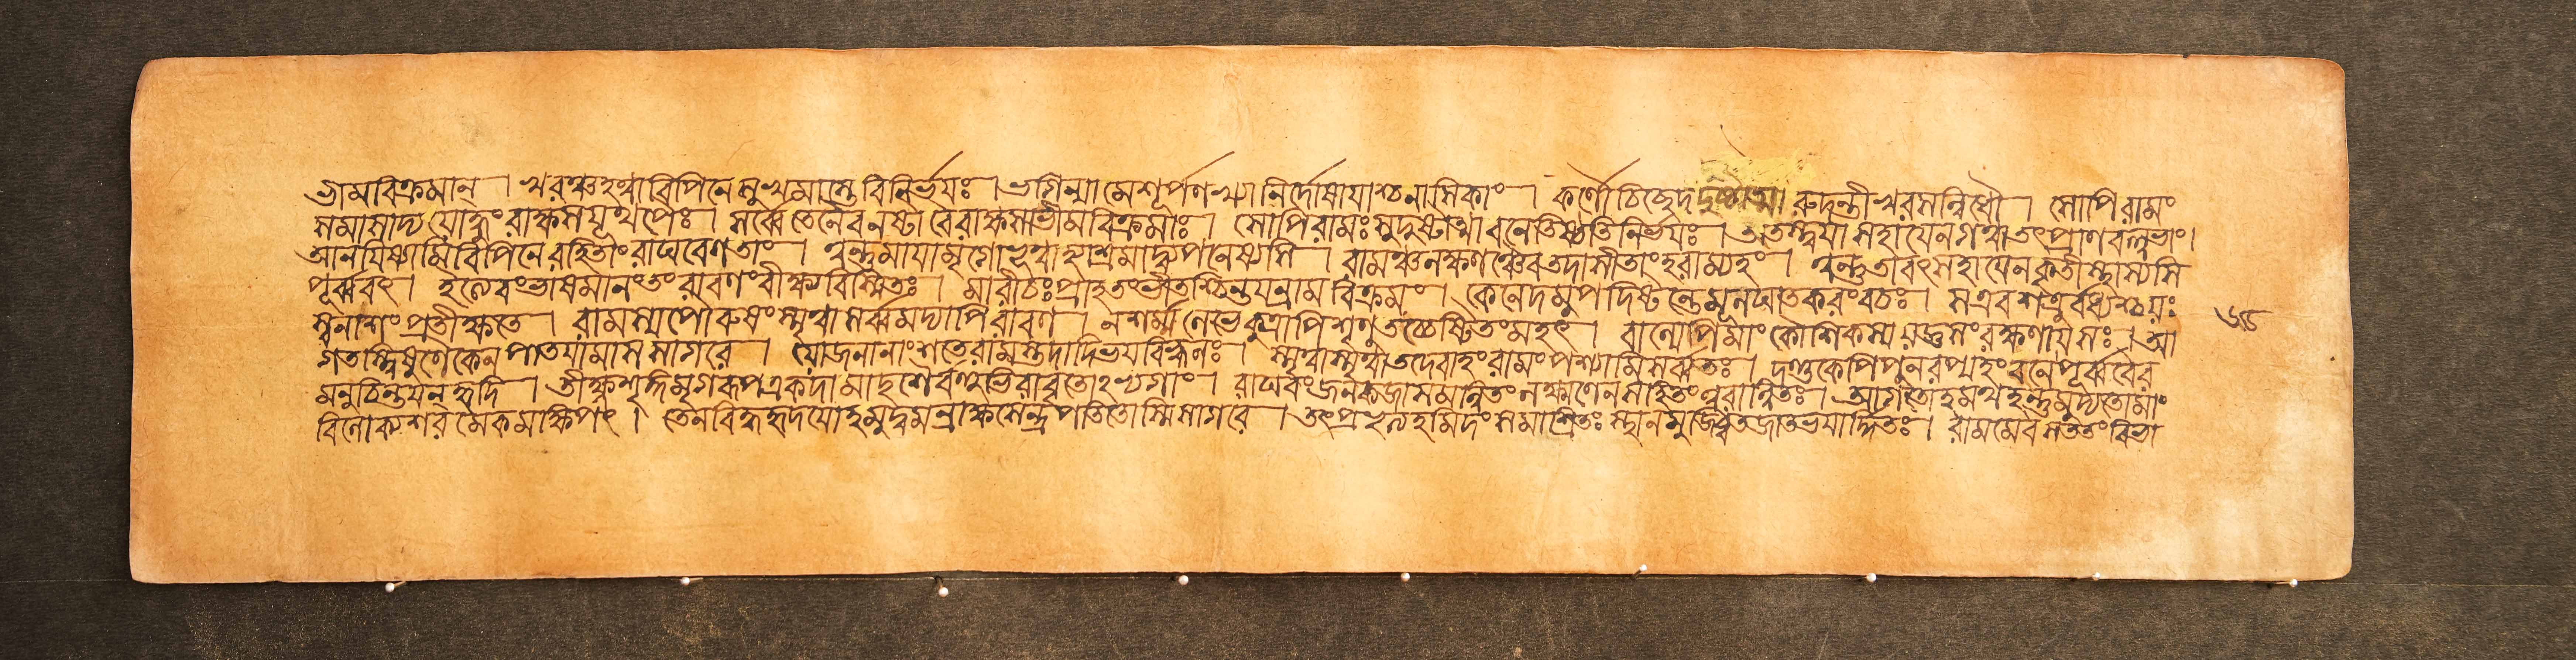 ভীমবিক্রমান্ । খরঞ্চহত্বাবিপিনেসুখমাস্তেবিনির্ভয়ঃ । ভগিন্যামেশূর্পণখ্যানির্দোষায়াশ্চনাসিকাং । কর্ণৌচিচ্ছেদদুষ্টাত্মা রুদন্তীখরসন্নিধৌ । সোপিরামং
সমাসাদ্য যোহুংরাক্ষসযূথপৈঃ । সর্ব্বেতেনৈবনষ্টাবৈরাক্ষসাভীমবিক্রমাঃ । সোপিরামঃসুদুষ্টাত্মাবনেতিষ্ঠতিনির্ভয়ঃ । অতস্ত্বয়াসহায়েনগত্বাতৎপ্রাণবল্লভাং।
আনয়িষ্যামিবিপিনেরহিতাংরাঘবেণতাং । ত্বন্তুমায়ামৃগোভূত্বাহ্যাশ্রমাদপনেষ্যসি । রামঞ্চলক্ষ্মণঞ্চৈবতদাসীতাংহরাম্যহং । ত্বন্তুতাবৎসহায়েনকৃতাস্থাস্যসি
পূর্ব্ববৎ । ইত্যেবংভাষমানংতংরাবণংবীক্ষ্যবিস্মিতঃ । মারীচঃপ্রাহতংভীতশ্চিন্তয়ন্রামবিক্রমং । কেনেদমুপদিষ্টন্তেমূলঘাতকরংবচঃ । সএবশত্রুর্বধ্যশ্চয়ঃ
ত্বন্নাশংপ্রতীক্ষতে । রামস্যপৌরুষংস্মৃত্বাসর্ব্বমদ্যাপিরাবণ । নশর্ম্মলেভেকুত্রাপিশৃণুতচ্চেষ্টিতংমহৎ । বাল্যেপিমাংকৌশিকস্যযজ্ঞসংরক্ষণায়সঃ । আ
গতস্ত্বিষুণৈকেনপাতয়ামাসসাগরে । যোজনানাংশতংরামস্তদাদিভয়বিহ্বলঃ । স্মৃত্বাস্মৃত্বাতদেবাহংরামংপশ্যামিসর্ব্বতঃ । দণ্ডকেপিপুনরপ্যহংবনেপূর্ব্ববৈর
মনুচিন্তয়ন্ হৃদি । তীক্ষ্ণশৃঙ্গমৃগরূপএকদামাদৃশৈর্বহুভিরাবৃতোঽভ্যগাং । রাঘবংজনকজাসমন্বিতংলক্ষ্মণেনসহিতংত্বরান্বিতঃ । আগতোহমথহন্তুমুদ্যতোমাং
বিলোক্যশরমেকমাক্ষিপৎ । তেনবিদ্ধহৃদয়োহমুদ্ভ্রমন্রাক্ষসেন্দ্রপতিতোস্মিসাগরে । তৎপ্রভৃত্যহমিদংসমাশ্রিতঃস্থানমূর্জিতজাতভয়ার্দ্দিতঃ । রামমেবসততংবিভা